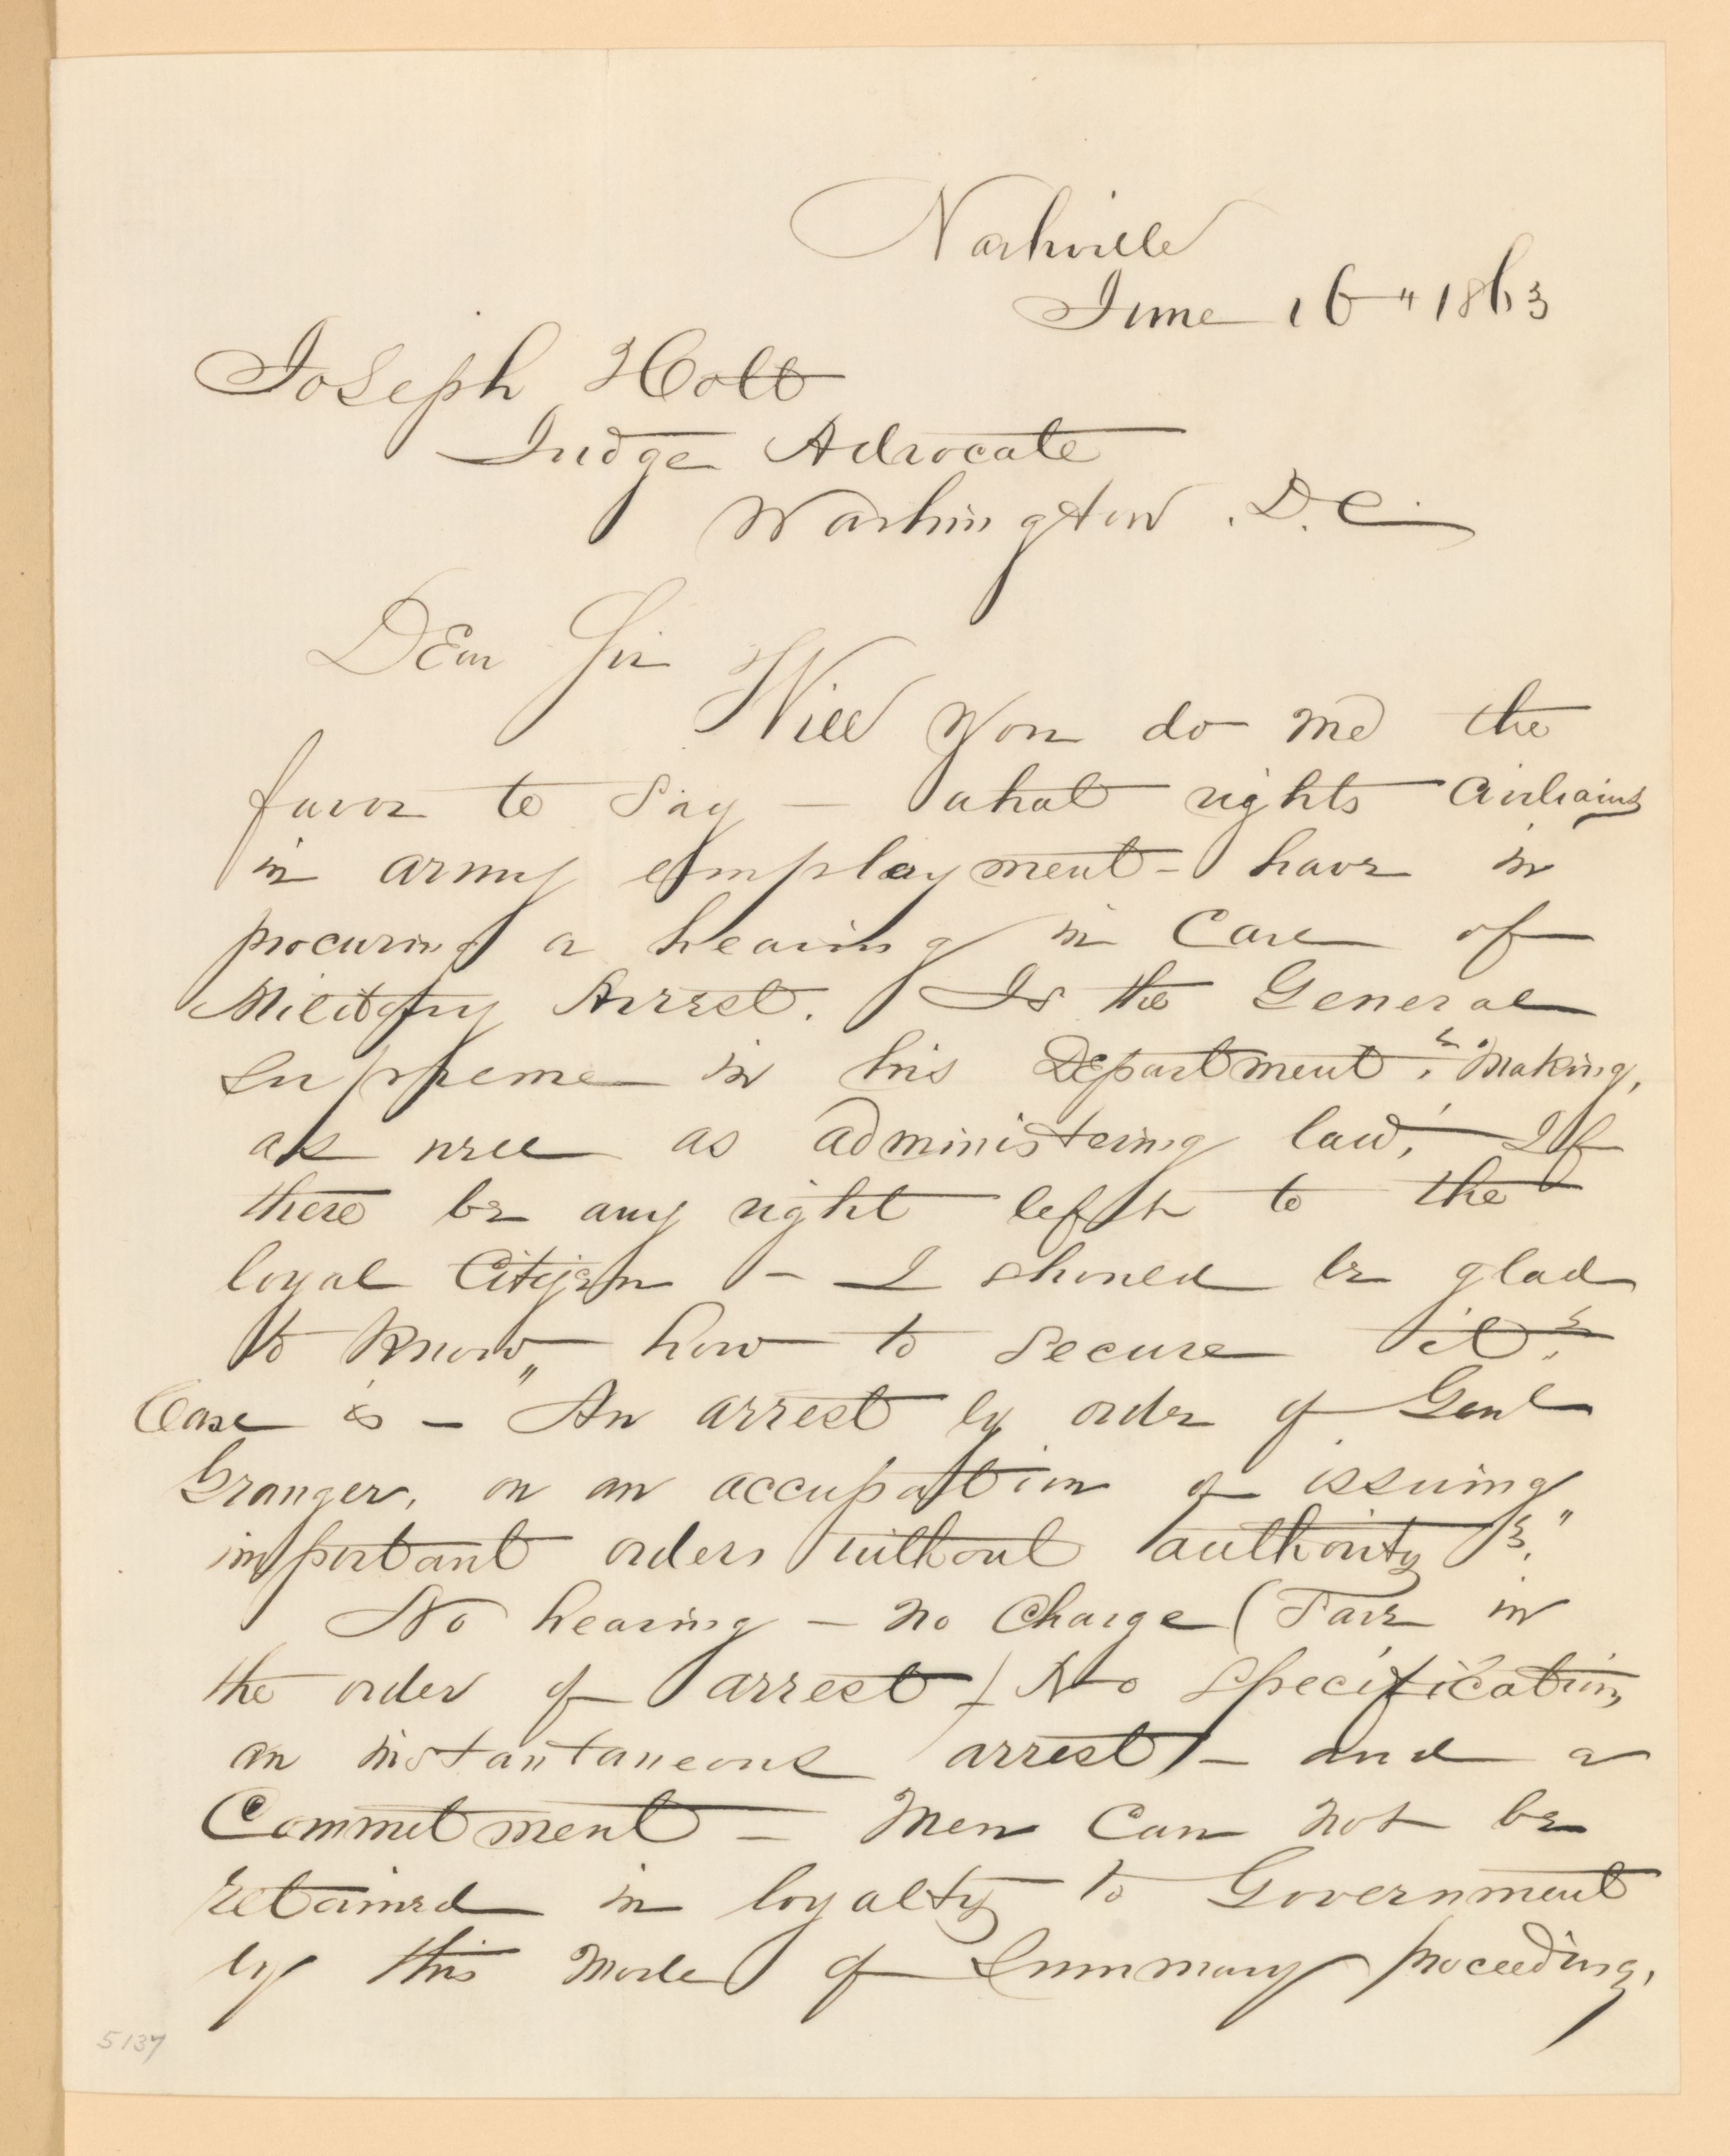 Nashville
June 16" 1863
Joseph Holt
Judge Advocate
Washington . D. C.
Dear Sir
Will you do me the
favor to say — what rights civilians
in army employment — have in
procuring a hearing in case of
Military Arrest. Is the General
supreme in his Department? Making,
as well as administering law, If
there be any right left to the
loyal Citizen — I should be glad
to know" how to secure it?
Case is — An arrest by order of Genl
Granger, on an accusation of issuing
important orders without authority?"
No hearing — no Charge (save in
the order of arrest) No specification,
an instantaneous arrest — and a
Commitment — Men can not be
retained in loyalty to Government
by this mode of summary proceeding,
5137